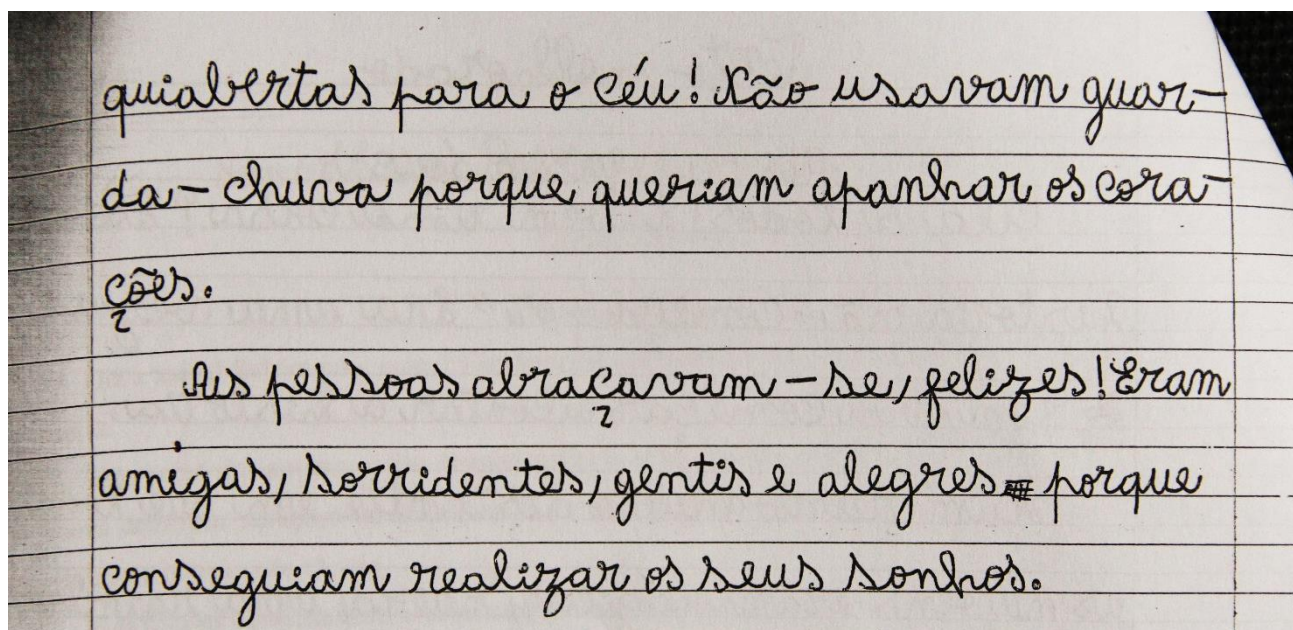 quiabertas para o céu! Não usavam guar-
da-chuva porque queriam apanhar os cora-
ções.
As pessoas abraçavam-se, felizes! Eram
amigas, sorridentes, gentis e alegres porque
conseguiam realizar os seus sonhos.